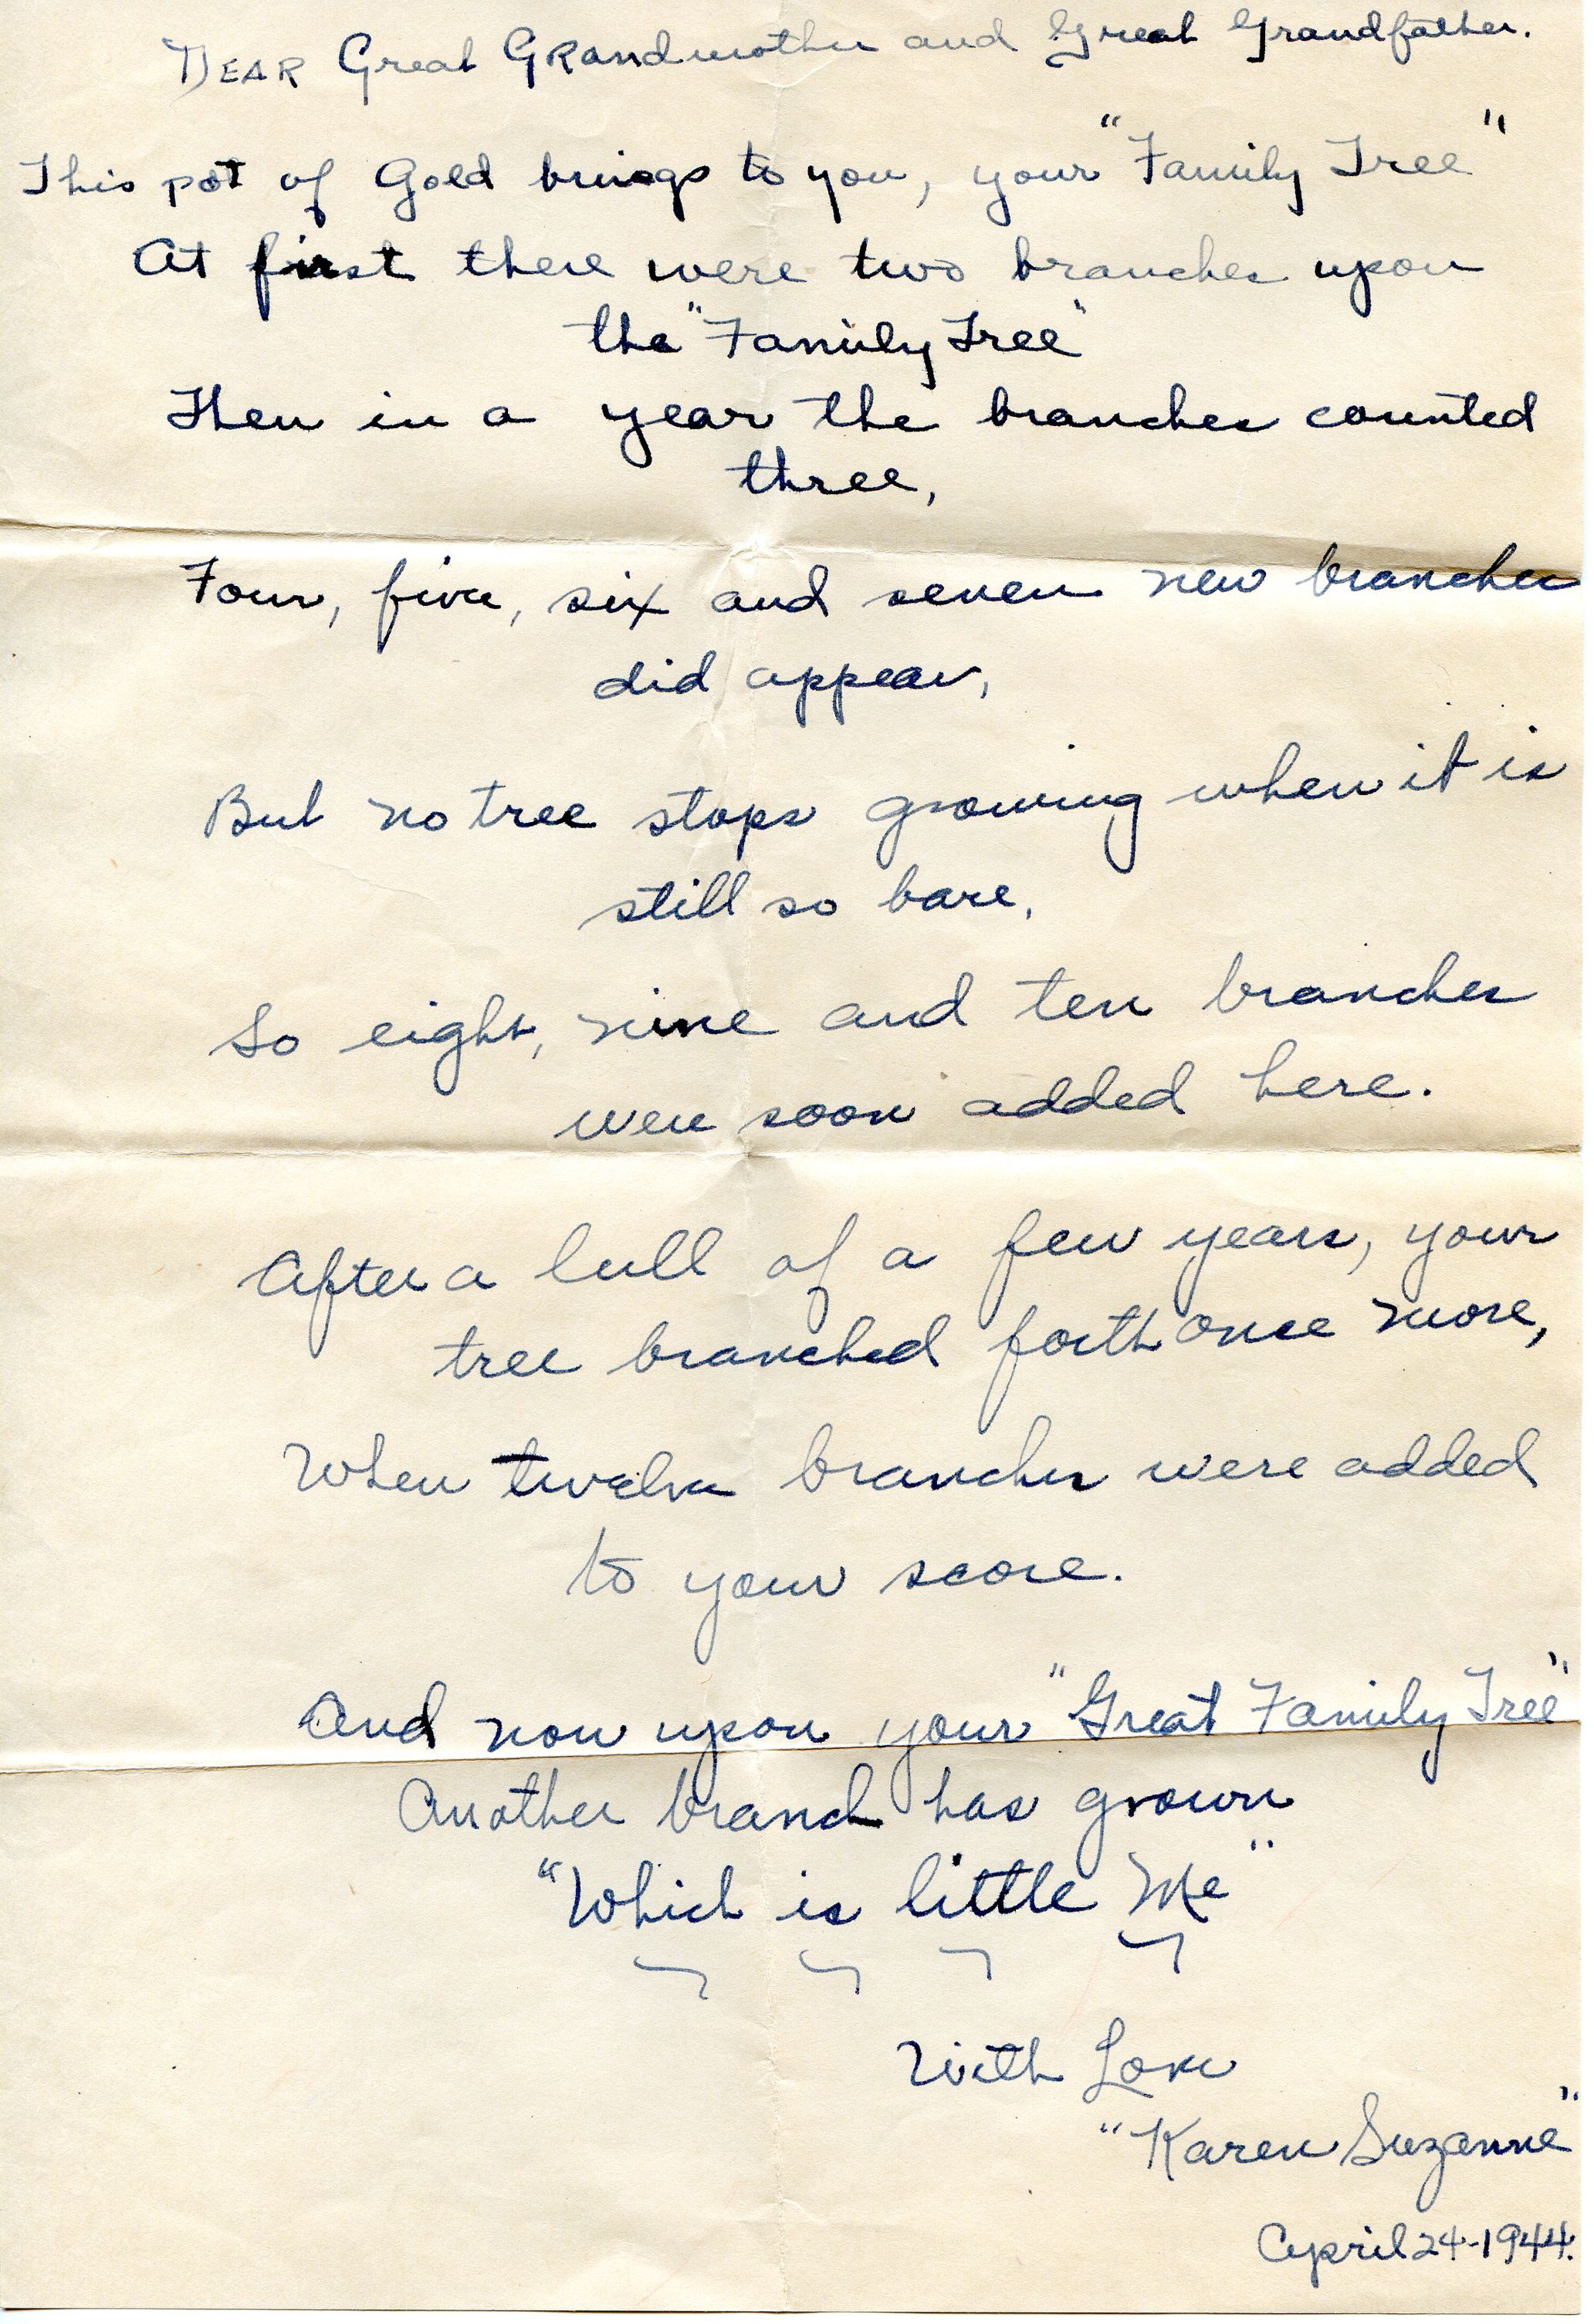 DEAR Great Grandmother and Great Grandfather.
This pot of Gold brings to you, your "Family Tree"
At first there were two branches upon
the "Family Tree"
Then in a year the branches counted
three,
Four, five, six and seven new branches
did appear,
But no tree stops growing when it is
still so bare.
So eight, nine and ten branches
were soon added here.
After a lull of a few years, your
tree branched forth once more,
When twelve branches were added
to your score.
And now upon your "Great Family Tree"
Another branch has grown
"Which is little Me"
With Love
"Karen Suzanne"
April 24-1944.